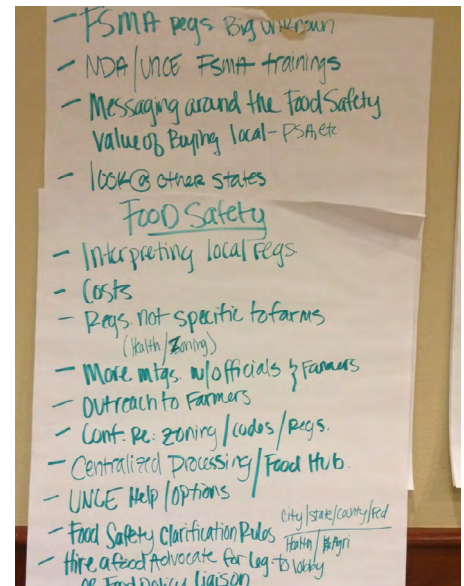 - FSMA regs Big unknown
- NDA/UNCE FSMA trainings
- Messaging around the Food Safety
Value of Buying local - PSA, etc
- look @ other states
Food Safety
- Interpreting local regs.
- Costs
- Regs. not specific to farms
(Health/Zoning)
- More mtgs. w/officials & Farmers
- Outreach to Farmers
- Conf. Re: Zoning/codes/Regs.
- Centralized Processing/Food Hub.
- UNCE Help/options
- Food Safety Clarification Rules City/state/county/Fed
Health/Agri
- Hire a food Advocate for Leg. to lobby
or Food Policy Liaison